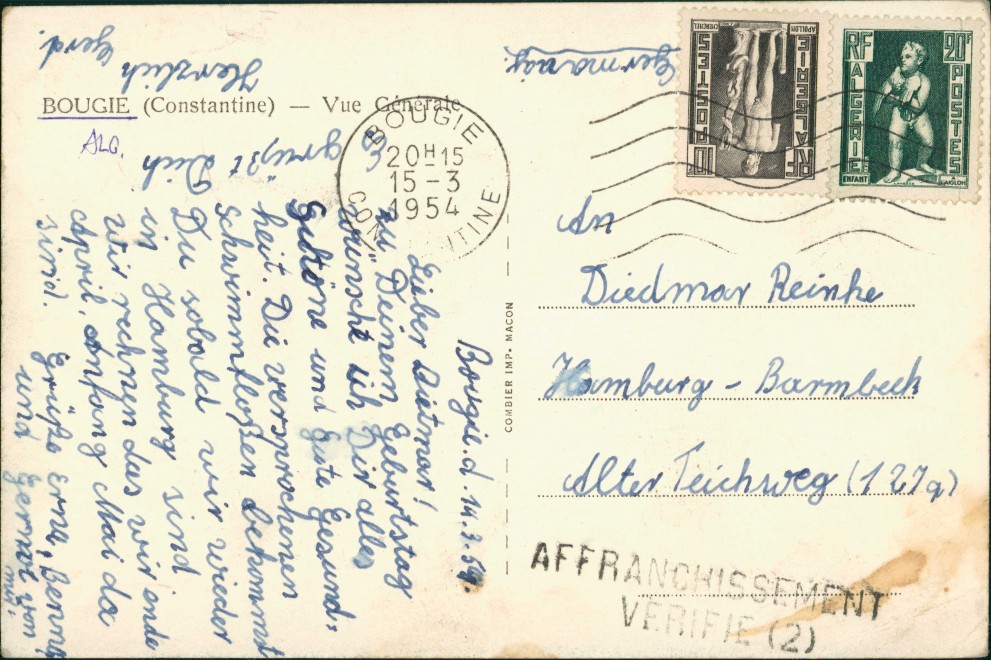 BOUGIE (Constantine) — Vue Générale
ALG.
Bougie.d. 14.3.54.
Lieber Dietmar!
zu Deinem Geburtstag
wünscht ich Dir alles
Schöne und gute Gesund-
heit. Die versprochenen
Schwimmfloßen bekommst
Du sobald wir wieder
in Hamburg sind
wir rechnen das wir ende
April, Anfang Mai da
sind.
Grüße Erne, Benno
und Gernot von
mir.
Es
grüßt Dich
Herzlich
Gerd.
COMBIER IMP. MACON
BOUGIE
20H15
15-3
1954
CONSTANTINE
Germany.
RF ALGERIE POSTES 10F
APOLLON CHERCHEL
RF ALGERIE POSTES 20F
ENFANT A L'AIGLON
An
Diedmar Reinke
Hamburg - Barmbeck
Alter Teichweg (127q)
AFFRANCHISSEMENT
VERIFIE (2)